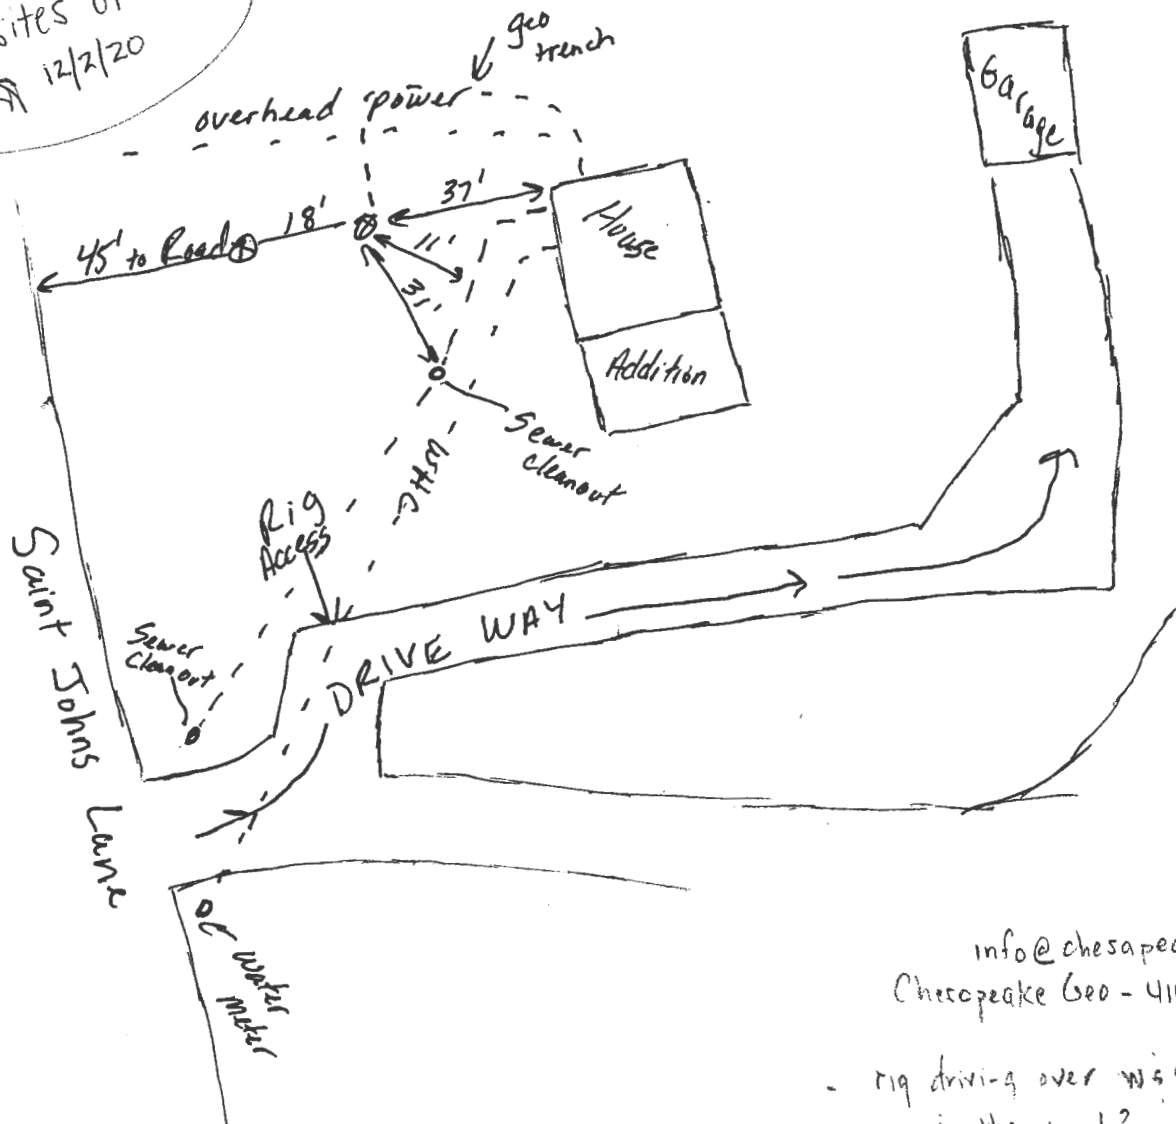 sites of
12/2/20
geo
trench
overhead power
Garage
37'
18'
45' to Road
11'
31'
House
Addition
Sewer
cleanout
WSHD
Rig
Access
DRIVE WAY
Sewer
Cleanout
Saint Johns Lane
water
meter
info@chesapea
Chesapeake Geo - 41
- rig driving over